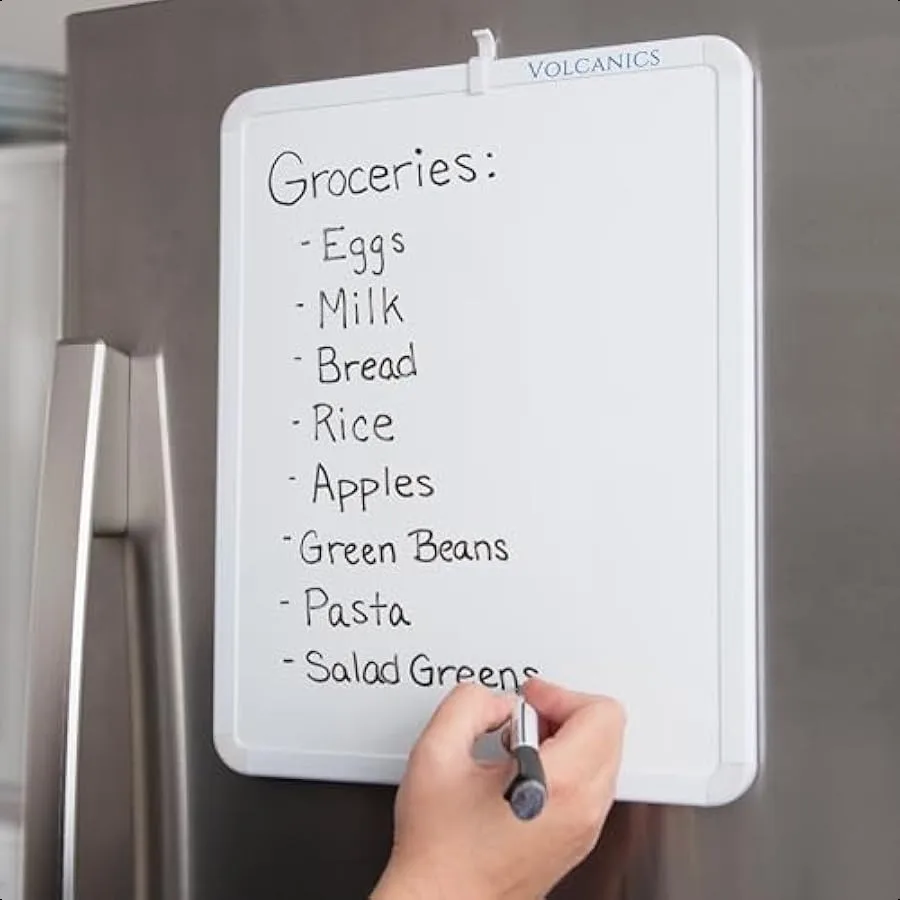 VOLCANICS
Groceries:
- Eggs
- Milk
- Bread
- Rice
- Apples
- Green Beans
- Pasta
- Salad Greens